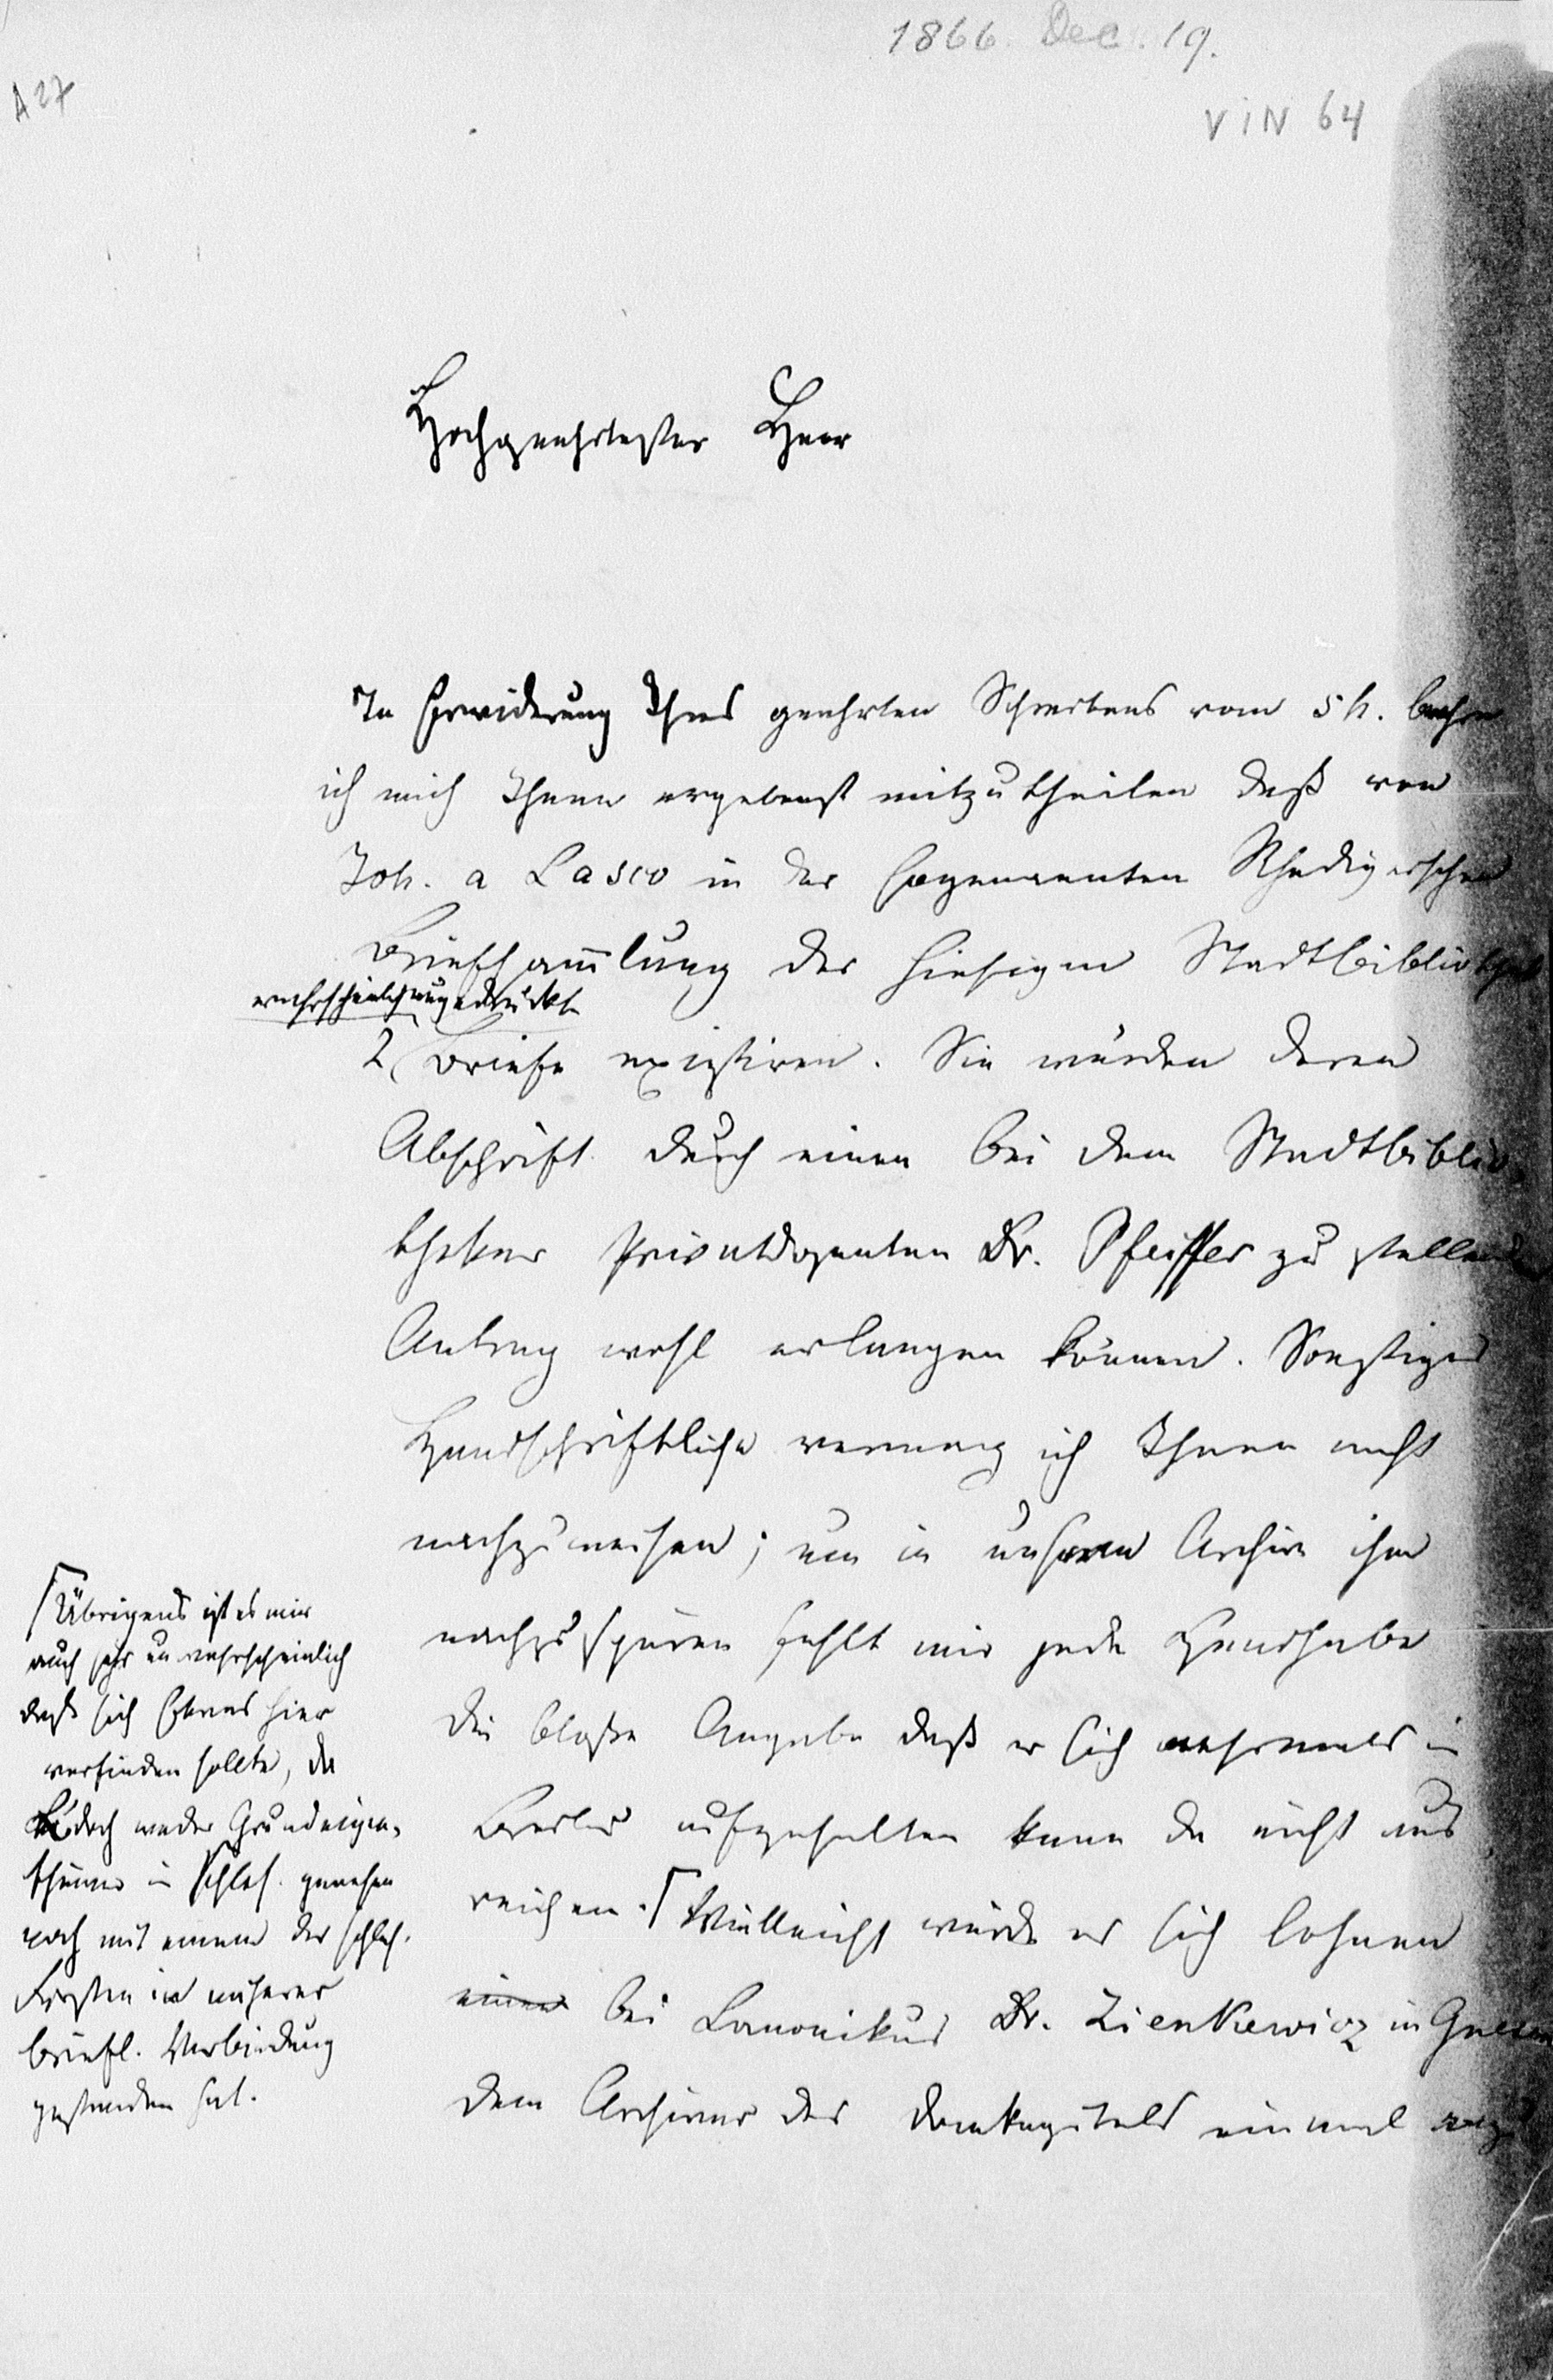 1866. Dec. 19.
A 27
VIN 64
Hochgeehrtester Herr
In Erwiderung Ihres geehrten Schreibens vom 5 h. beehre
ich mich Ihnen ergebenst mitzutheilen daß von
Joh. a Lasco in der sogenannten Rhedigerschen
Briefsammlung der hiesigen Stadtbibliothek
wahrscheinlich ungedruckte
2 Briefe existiren. Sie würden deren
Abschrift durch einen bei dem Stadtbiblio-
thekar Privatdozenten Dr. Pfeiffer zu stellenden
Antrag wohl erlangen können. Sonstiges
Handschriftliche vermag ich Ihnen nicht
nachzuweisen; um in unserem Archiv ihm
nachzuspüren fehlt mir jede Handhabe
die bloße Angabe daß er sich mehrmals in
Breslau aufgehalten kann da nicht aus
reichen. ⌈ Vielleicht würde es sich lohnen
einen bei Canonikus Dr. Zienkewicz in Gnesen
dem Archivar des Domkapitels einmal
⌈ Übrigens ist es mir
auch sehr unwahrscheinlich
daß sich Etwas hier
vorfinden sollte, da
L. doch weder Grundeigen-
thümer in Schles. gewesen
noch mit einem der schles.
Fürsten in näherer
briefl. Verbindung
gestanden hat.